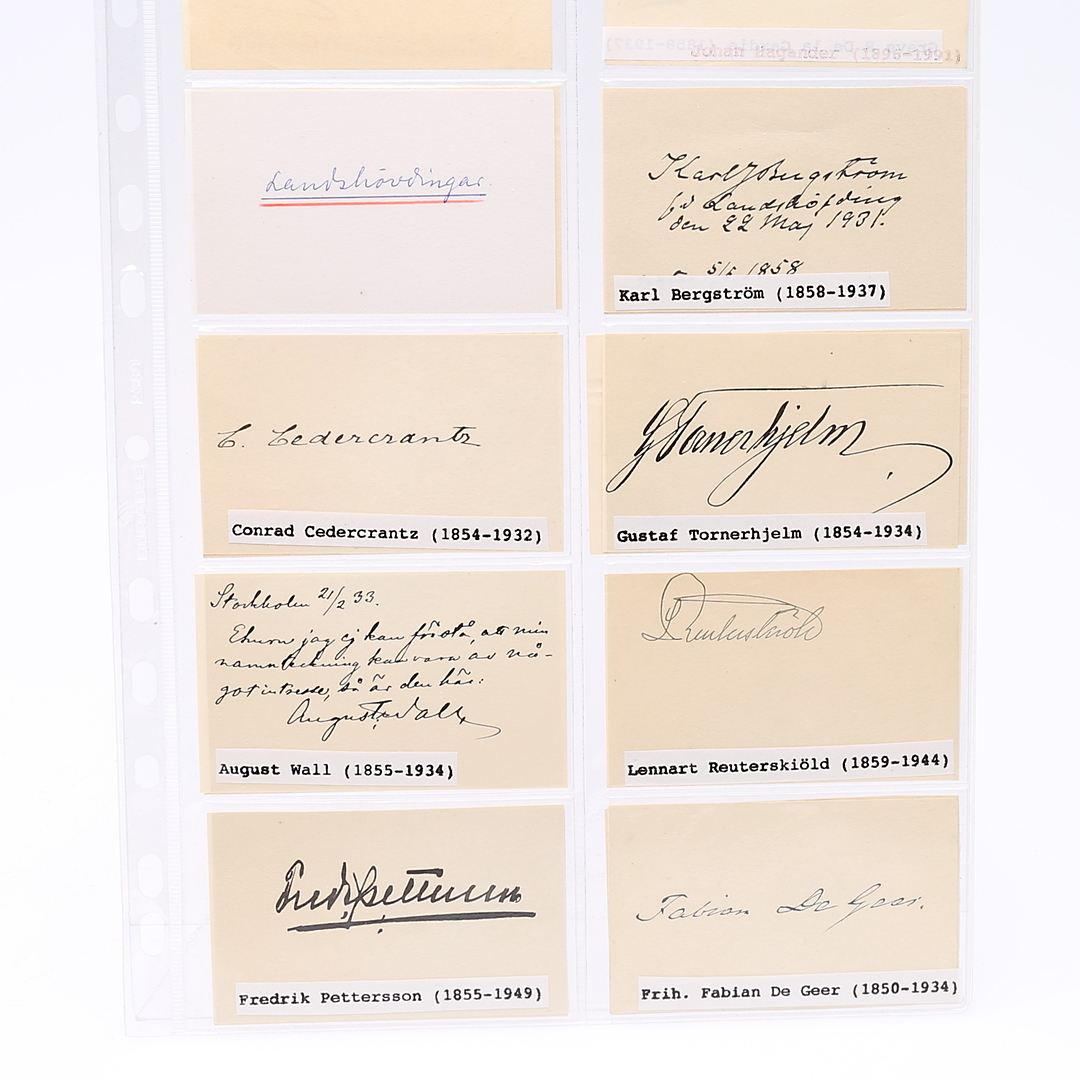 Johan Hagander (1896-1991)
Landshövdingar.
Karl J Bergström
f.d. Landshöfding
den 22 Maj 1931.
5/5 1858
Karl Bergström (1858-1937)
C. Cedercrantz
Conrad Cedercrantz (1854-1932)
G Tornerhjelm
Gustaf Tornerhjelm (1854-1934)
Stockholm 21/2 33.
Ehuru jag ej kan förstå, att min
namnteckning kan vara av nå-
got intresse, så är den här:
August Wall
August Wall (1855-1934)
L Reuterskiöld
Lennart Reuterskiöld (1859-1944)
Fredr. Pettersson
Fredrik Pettersson (1855-1949)
Fabian De Geer.
Frih. Fabian De Geer (1850-1934)